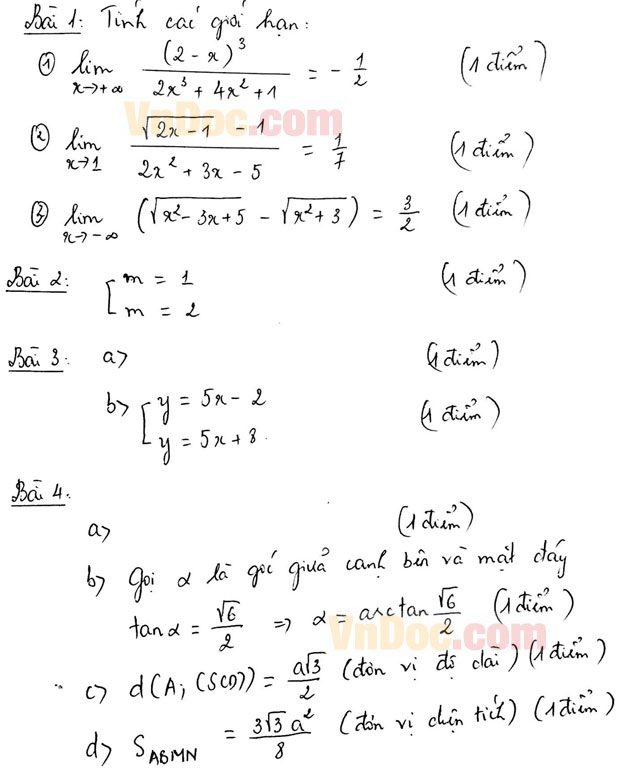 Bài 1: Tính các giới hạn:
① lim x→+∞ (2 - x)³ / (2x³ + 4x² + 1) = - 1/2 (1 điểm)
② lim x→1 (√(2x-1) - 1) / (2x² + 3x - 5) = 1/7 (1 điểm)
③ lim x→-∞ (√(x² - 3x + 5) - √(x² + 3)) = 3/2 (1 điểm)
Bài 2: [ m = 1 (1 điểm)
m = 2
Bài 3: a> (1 điểm)
b> [ y = 5x - 2 (1 điểm)
y = 5x + 8.
Bài 4:
a> (1 điểm)
b> Gọi α là góc giữa cạnh bên và mặt đáy
tan α = √6/2 => α = arctan √6/2 (1 điểm)
c> d(A; (SCD)) = a√3/2 (đơn vị độ dài) (1 điểm)
d> S_ABMN = 3√3 a²/8 (đơn vị diện tích) (1 điểm)
VnDoc.com
VnDoc.com